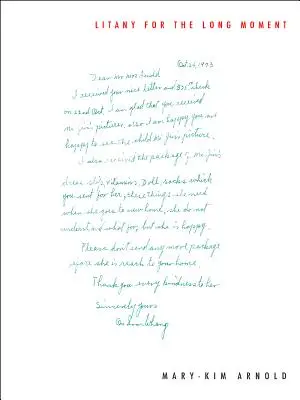 LITANY FOR THE LONG MOMENT
Oct 26, 1973
Dear Mr Mrs Arnold
I received your nice letter and $35 check
on 22nd Oct. I am glad that you received
Mi Jin's pictures, also I am happy you are
happy to see the child Mi Jin's picture.
I also received the package of Mi Jin's
dress, slip, vitamins, Doll, socks which
you sent for her, these things she need
when she goes to new home, she do not
understand what for, but she is happy.
Please don't send any more package
before she is reach to your home.
Thank you every kindness to her
Sincerely yours
MARY-KIM ARNOLD